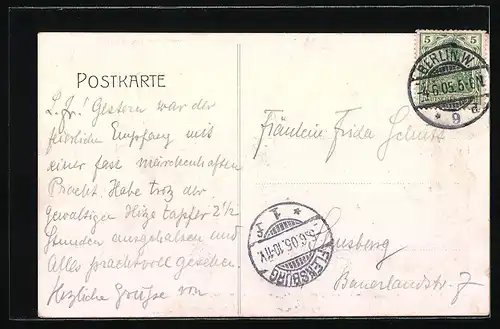 POSTKARTE
L. Fr.! Gestern war der
feierliche Empfang mit
einer fast märchenhaften
Pracht. Habe troz der
gewaltigen Hitze tapfer 2½
Stunden ausgehalten und
Alles prachtvoll gesehen.
Herzliche Grüsse von
Fräulein Frida
Flensburg
Bauerlandstr. 7
5 5
BERLIN W.
4.6.05.5-6N
* 9 a
FLENSBURG
5.6.05.10-11V.
* 1